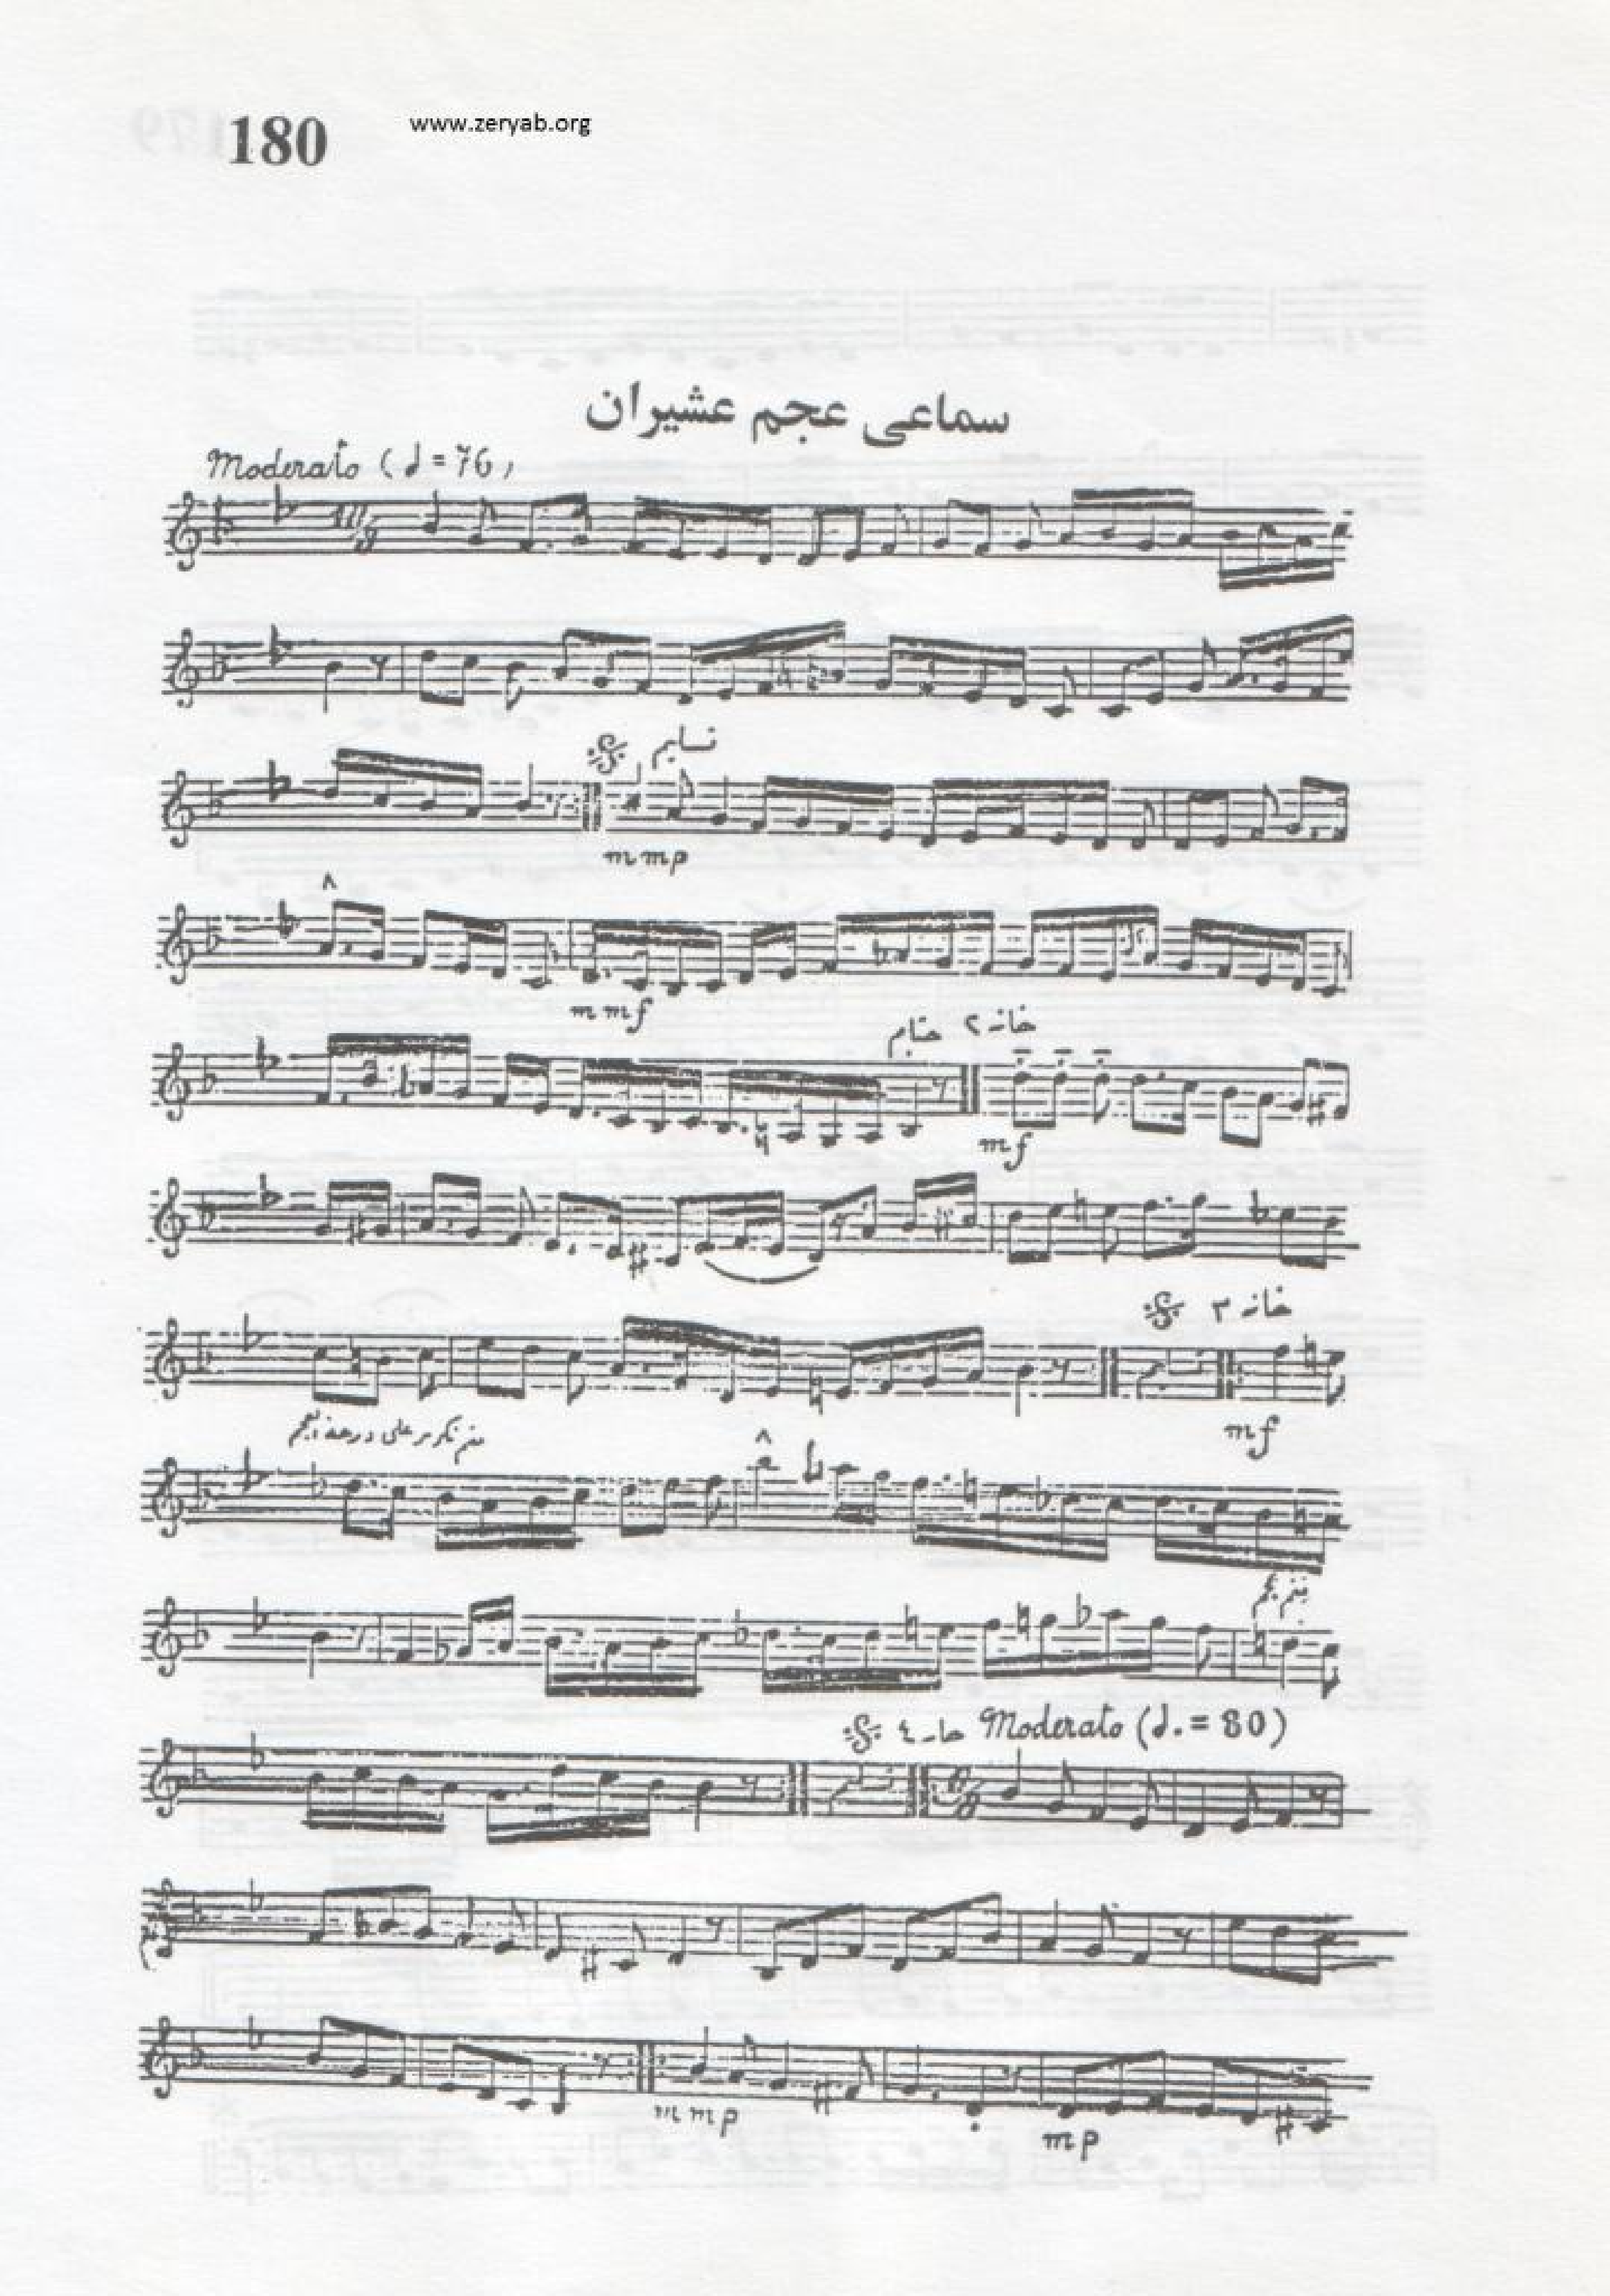 180
www.zeryab.org
سماعي عجم عشيران
Moderato (♩=76)
تسليم
mmp
mmf
ختام خانة ٢
mf
خانة ٣
mf
Moderato (♩.=80)
6/8
mmp
mp